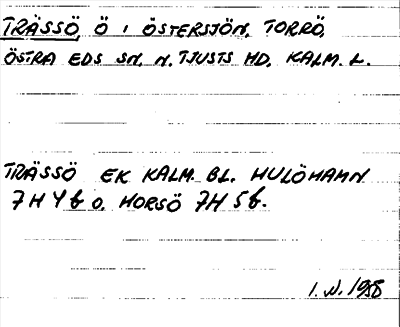 TRÄSSÖ, Ö I ÖSTERSJÖN, TORRÖ,
ÖSTRA EDS SN. N. TJUSTS HD, KALM. L.
TRÄSSÖ EK KALM. BL. HULÖHAMN
7H4b O. HORSÖ 7H5b.
1958